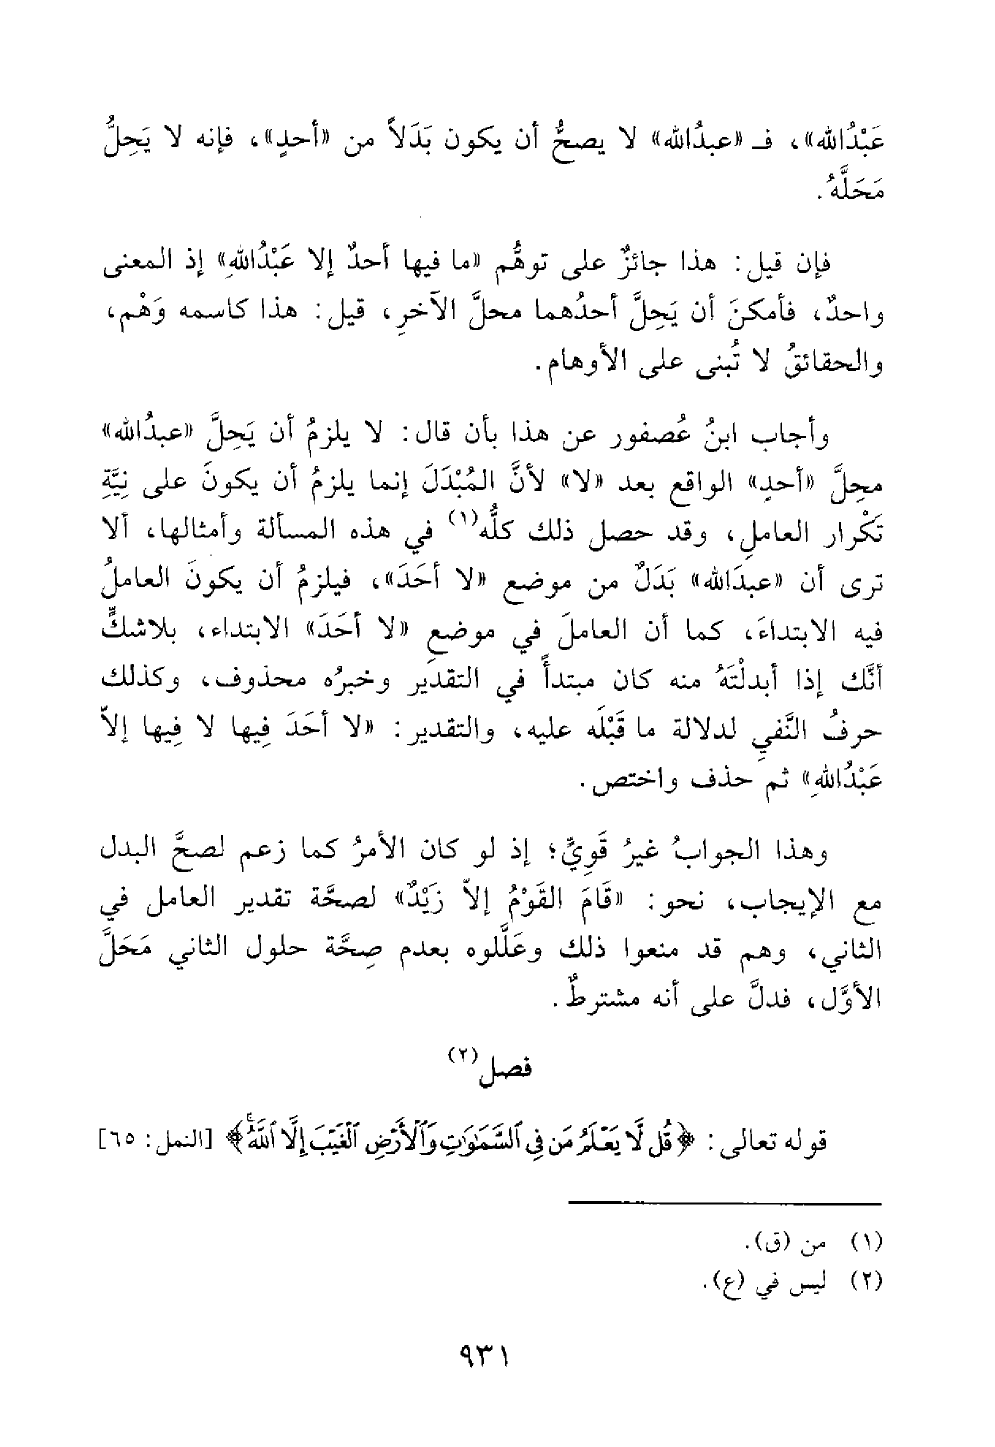 عَبْدُالله»، فـ «عبدُالله» لا يصحُّ أن يكون بَدَلاً من «أحدٍ»، فإنه لا يَحِلُّ
مَحَلَّهُ.
فإن قيل: هذا جائزٌ على توهُّم «ما فيها أحدٌ إلا عَبْدُاللهِ» إذ المعنى
واحدٌ، فأمكنَ أن يَحِلَّ أحدُهما محلَّ الآخرِ، قيل: هذا كاسمه وَهْم،
والحقائقُ لا تُبنى على الأوهام.
وأجاب ابنُ عُصفور عن هذا بأن قال: لا يلزمُ أن يَحِلَّ «عبدُالله»
محِلَّ «أحدِ» الواقع بعد «لا» لأنَّ المُبْدَلَ إنما يلزمُ أن يكونَ على نِيَّةِ
تَكْرار العاملِ، وقد حصل ذلك كلُّه(١) في هذه المسألة وأمثالها، ألا
ترى أن «عبدَالله» بَدَلٌ من موضع «لا أحَدَ»، فيلزمُ أن يكونَ العاملُ
فيه الابتداءَ، كما أن العاملَ في موضعِ «لا أحَدَ» الابتداء، بلاشكٍّ
أنَّك إذا أبدلْتَهُ منه كان مبتدأً في التقدير وخبرُه محذوف، وكذلك
حرفُ النَّفيِ لدلالة ما قَبْلَه عليه، والتقدير: «لا أحَدَ فِيها لا فِيها إلاّ
عَبْدُاللهِ» ثم حذف واختص.
وهذا الجوابُ غيرُ قَوِيٍّ؛ إذ لو كان الأمرُ كما زعم لصحَّ البدل
مع الإيجاب، نحو: «قَامَ القَوْمُ إلاّ زَيْدٌ» لصحَّة تقدير العامل في
الثاني، وهم قد منعوا ذلك وعَلَّلوه بعدم صِحَّة حلول الثاني مَحَلَّ
الأوَّل، فدلَّ على أنه مشترطٌ.
فصل(٢)
قوله تعالى: ﴿قُل لَّا يَعْلَمُ مَن فِي ٱلسَّمَٰوَٰتِ وَٱلْأَرْضِ ٱلْغَيْبَ إِلَّا ٱللَّهُۚ﴾ [النمل: ٦٥]
(١) من (ق).
(٢) ليس في (ع).
٩٣١